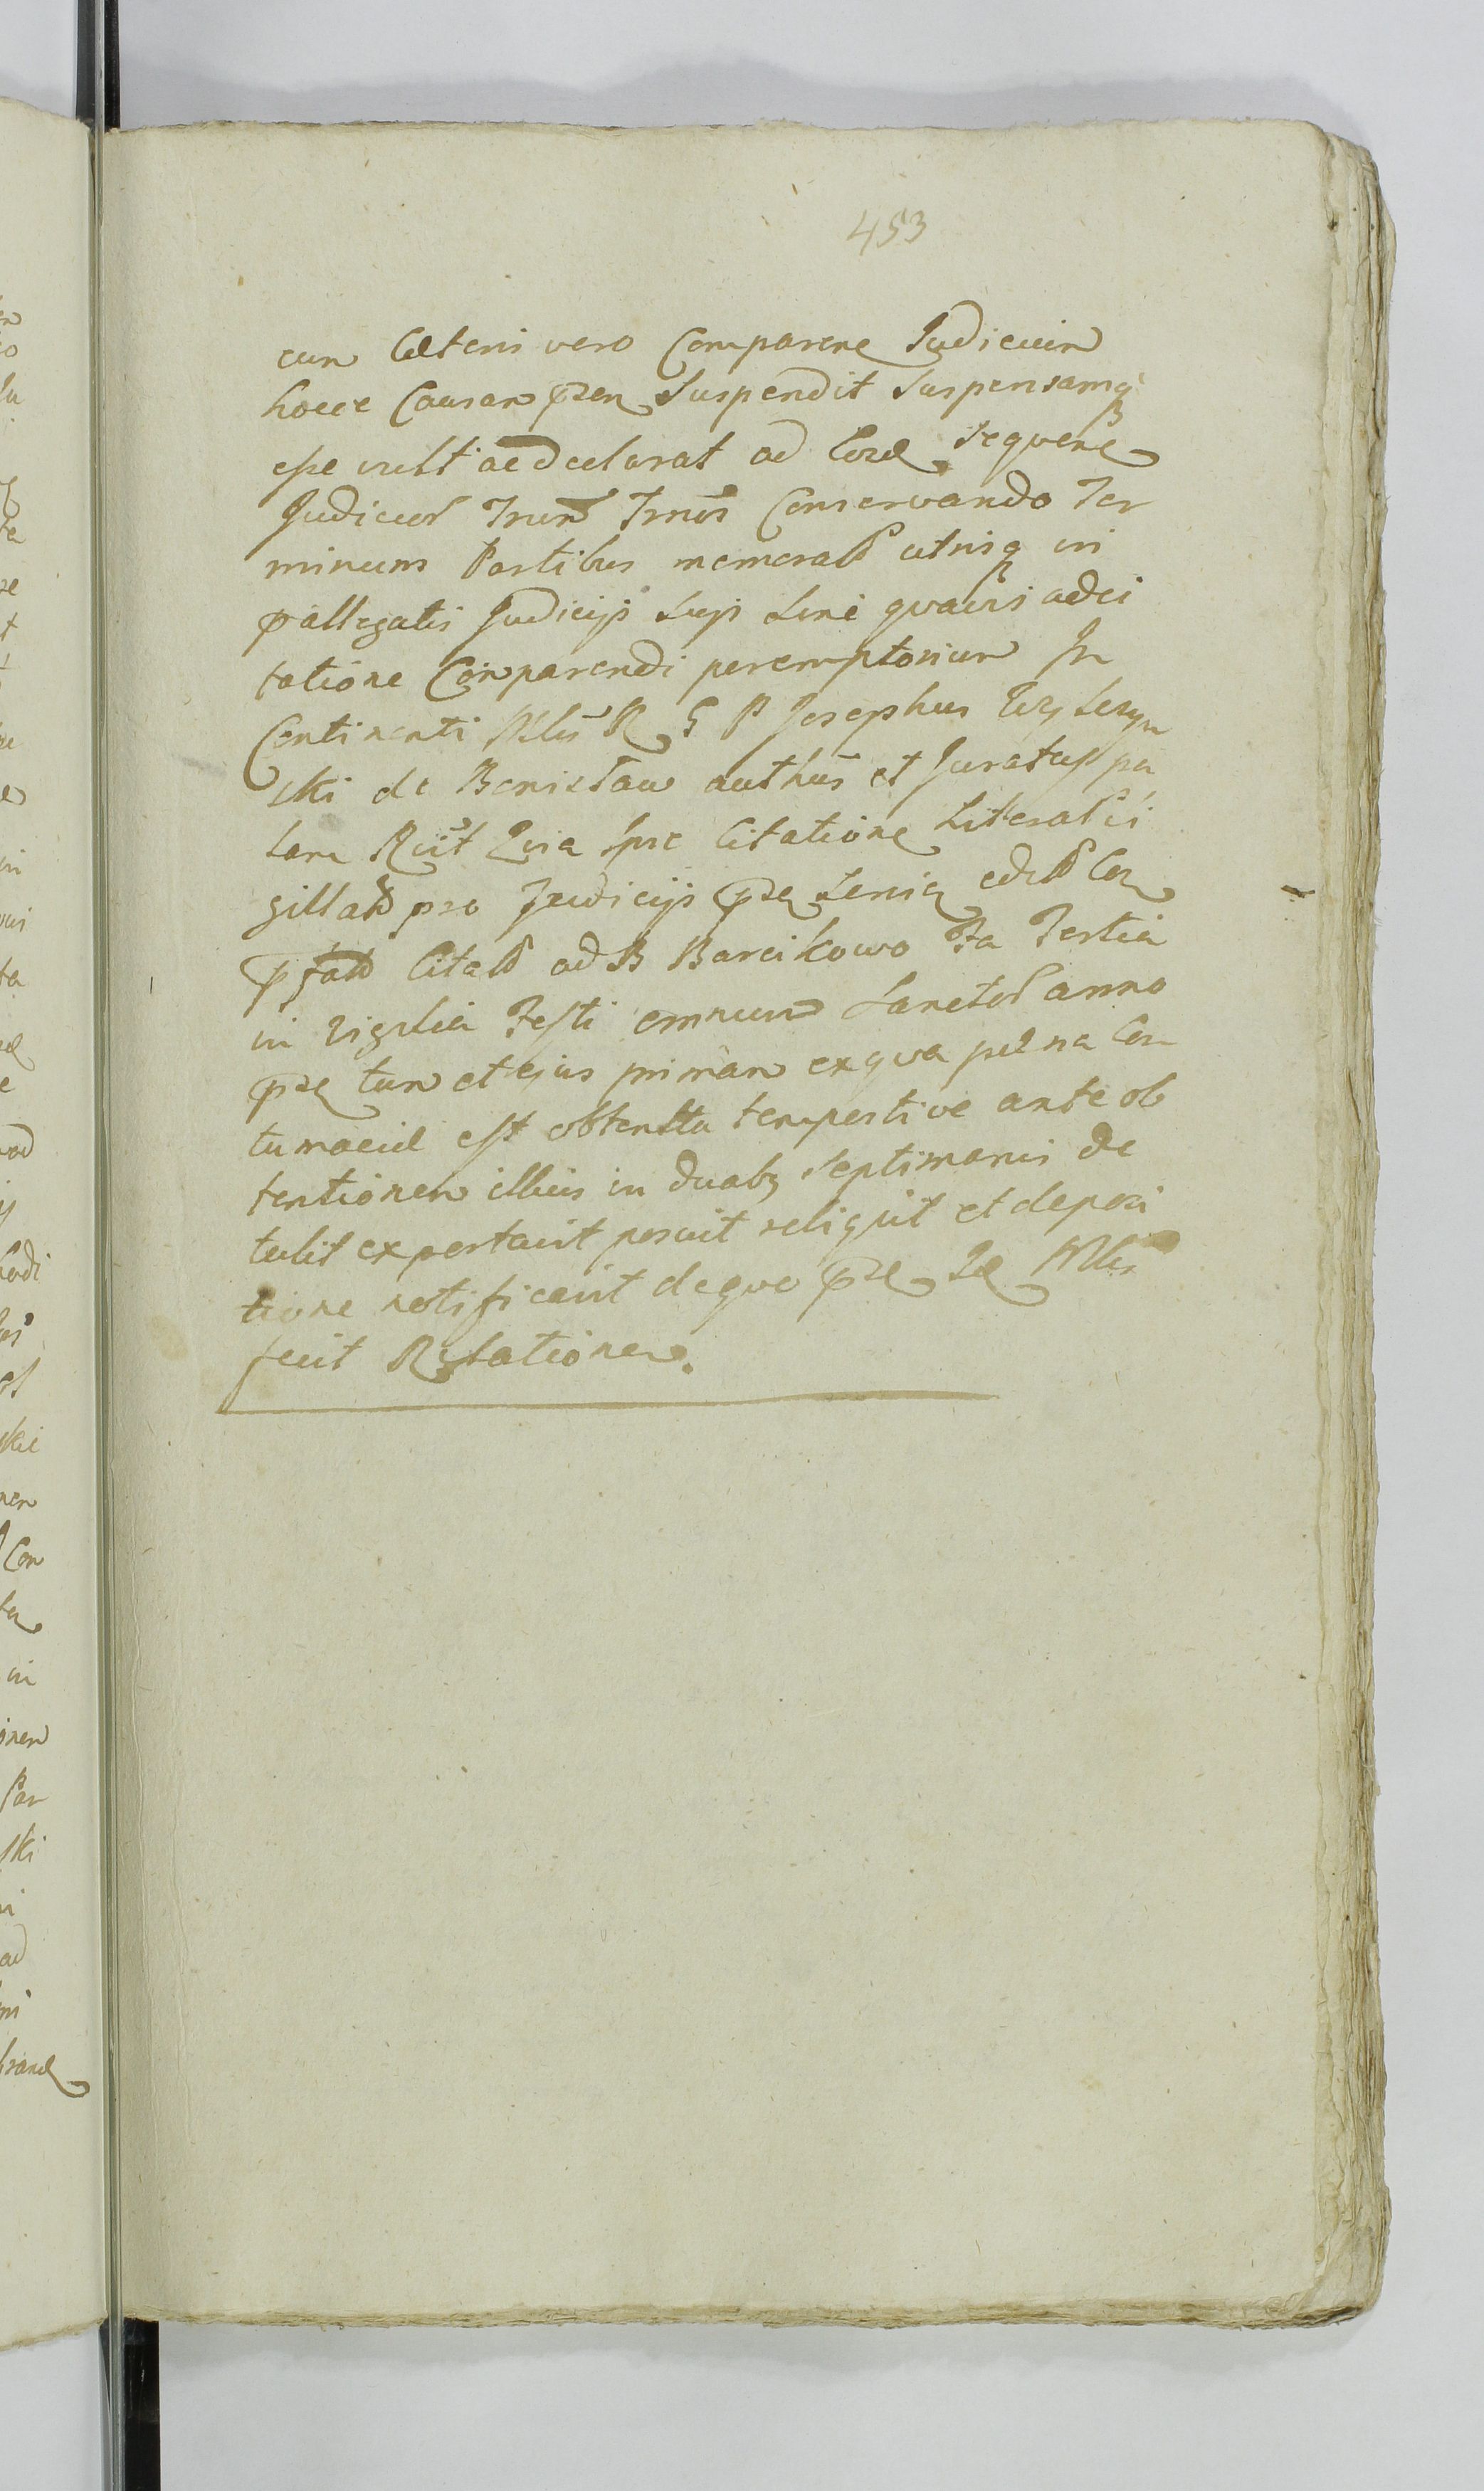 453
cum Cæteris vero Comparere Judicium
hocce Causam præn Suspendit Suspensamq
esse vult ac declarat ad Cord seqvenc
Judicior Trum Trnos Conservando Ter
minum Partibus memorat utrisq in
pallegatis Judicijs Sup sine qvavis adci
tatione Comparendi peremptorium In
Continenti Mlis R G P Josephus
ski de authus et Juratus pa
lam Rcut Quia Ipse Citatione Literat si
gillat pro Judicijs præ edit
pfat Citat ad B Barcikowo Fa Tertia
in vigilia Festi omnium Sanctor anno
præ tum et ejus primam ex qva pæna Con
tumaciæ est obtenta tempestive ante ob
tentionem illius in duabq Septimanis de
tulit exportavit posuit reliqvit et deposi
tione notificavit deqve præ Mlis
fecit Relationem.